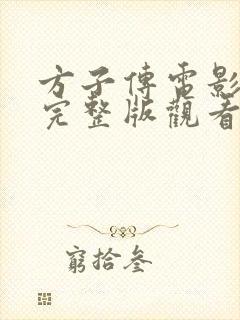 方子傳電影
完整版觀看
窮拾叁